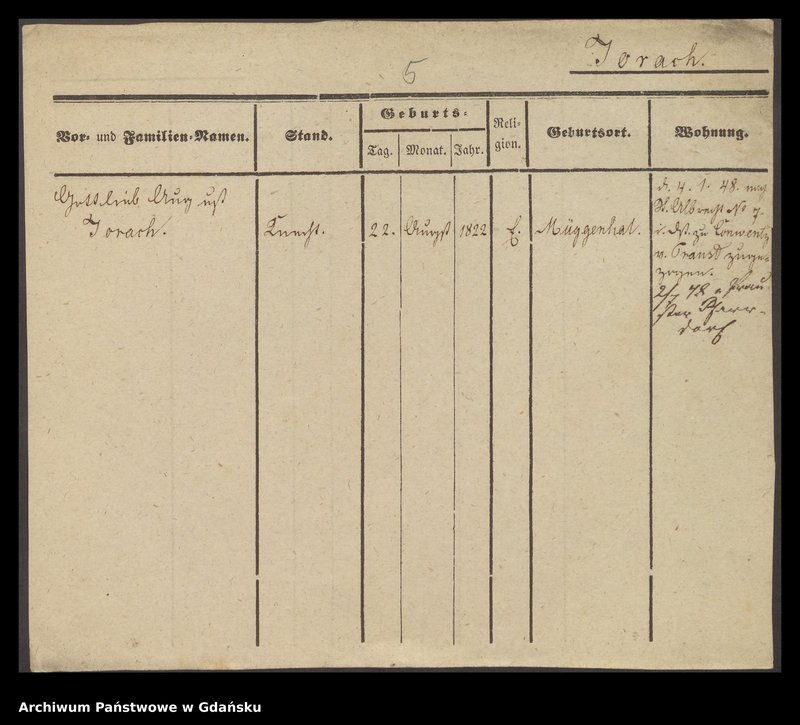 Jorach.
5
Vor- und Familien-Namen.
Stand.
Geburts-
Tag.
Monat.
Jahr.
Reli-
gion.
Geburtsort.
Wohnung.
Gottlieb August
Jorach.
Knecht.
22.
August
1822
E.
Müggenhal.
d. 4. 1. 48. nach
St. Albrecht No 7.
i. Dst. zu Conwentz
v. Praust zuge-
zogen.
2/7 48 Prau
ster Pfarr-
dorf
Archiwum Państwowe w Gdańsku